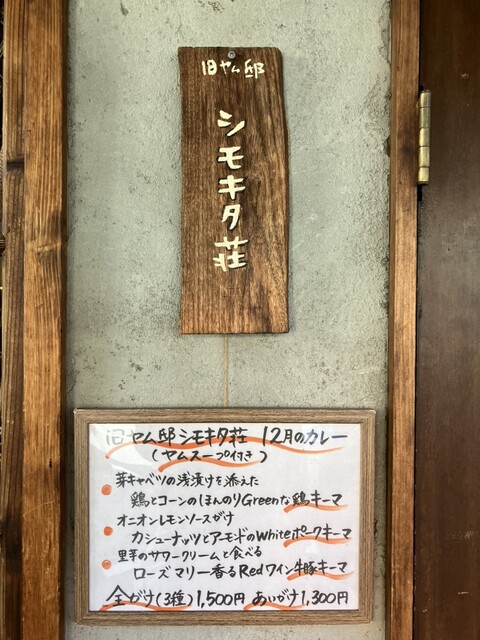 旧ヤム邸
シモキタ荘
旧ヤム邸シモキタ荘 12月のカレー
(ヤムスープ付き)
芽キャベツの浅漬けを添えた
鶏とコーンのほんのりGreenな鶏キーマ
オニオンレモンソースがけ
カシューナッツとアーモンドのWhiteポークキーマ
里芋のサワークリームと食べる
ローズマリー香るRedワイン牛豚キーマ
全がけ(3種)1,500円 あいがけ1,300円